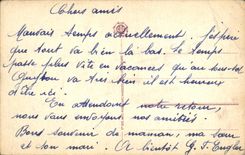 Chers amis
Mauvais temps actuellement. J'espère
que tout va bien là bas. Le temps
passe plus vite en vacances qu'au
va très bien il est heureux
d'être ici.
En attendant notre retour,
nous vous envoyons nos amitiés.
Bons souvenir de maman, ma sœur
et son mari. A bientôt G. F.